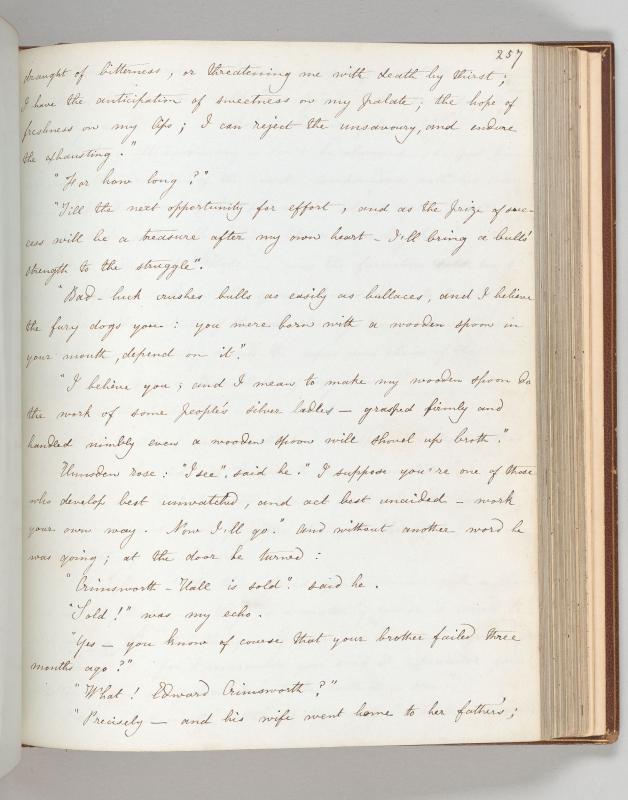 257
draught of bitterness, or threatening me with death by thirst;
I have the anticipation of sweetness on my palate; the hope of
freshness on my lips; I can reject the unsavoury, and endure
the exhausting."
"For how long?"
"Till the next opportunity for effort, and as the prize of suc-
cess will be a treasure after my own heart - I'll bring a bull's
strength to the struggle".
"Bad-luck crushes bulls as easily as bullaces, and I believe
the fury dogs you: you were born with a wooden spoon in
your mouth, depend on it".
"I believe you; and I mean to make my wooden spoon do
the work of some people's silver ladles — grasped firmly and
handled nimbly even a wooden spoon will shovel up broth."
Hunsden rose: "I see", said he. "I suppose you're one of those
who develop best unwatched, and act best unaided - work
your own way. Now I'll go." and without another word he
was going; at the door he turned:
"Crimsworth-Hall is sold". said he.
"Sold!" was my echo.
"Yes — you know of course that your brother failed three
months ago?"
"What! Edward Crimsworth?"
"Precisely — and his wife went home to her father's;